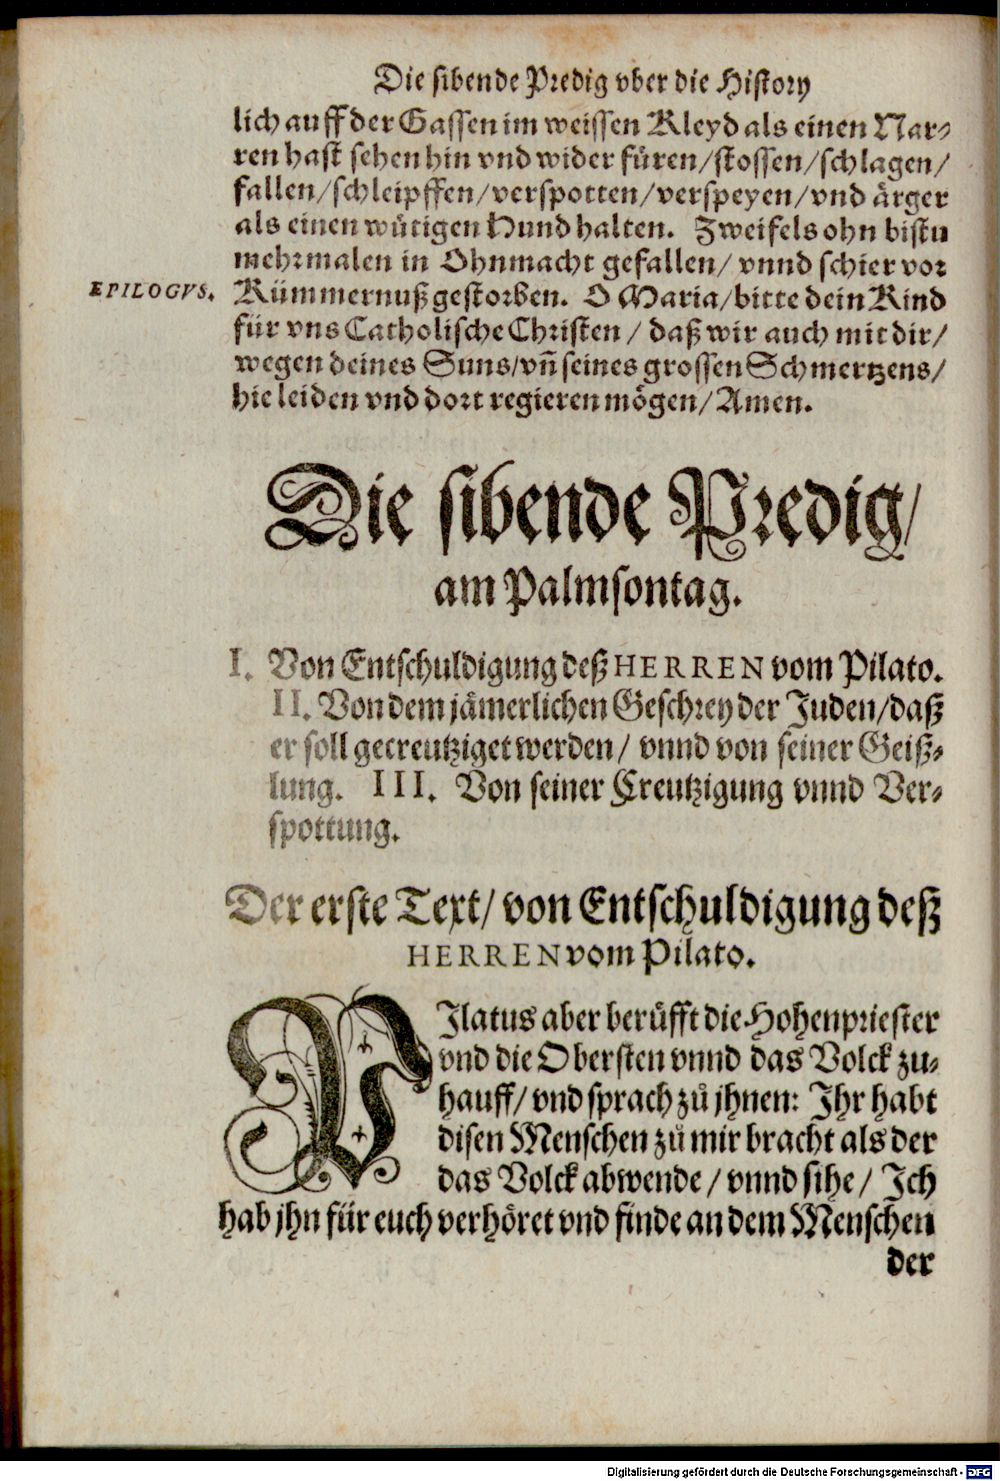 Die sibende Predig vber die History
lich auff der Gassen im weissen Kleyd als einen Nar⸗
ren hast sehen hin vnd wider füren/stossen/schlagen/
fallen/schleipffen/verspotten/verspeyen/vnd ärger
als einen wütigen Hund halten. Zweifels ohn bistu
mehrmalen in Ohnmacht gefallen/ vnnd schier vor
EPILOGVS.
Kümmernuß gestorben. O Maria/bitte dein Kind
für vns Catholische Christen / daß wir auch mit dir/
wegen deines Suns/vñ seines grossen Schmertzens/
hie leiden vnd dort regieren mögen/ Amen.
Die sibende Predig/
am Palmsontag.
I. Von Entschuldigung deß HERREN vom Pilato.
II. Von dem jämerlichen Geschrey der Juden/daß
er soll gecreutziget werden/ vnnd von seiner Geiß⸗
lung. III. Von seiner Creutzigung vnnd Ver⸗
spottung.
Der erste Text/ von Entschuldigung deß
HERREN vom Pilato.
PIlatus aber berüfft die Hohenpriester
vnd die Obersten vnnd das Volck zu⸗
hauff/ vnd sprach zů jhnen: Ihr habt
disen Menschen zů mir bracht als der
das Volck abwende / vnnd sihe / Ich
hab jhn für euch verhöret vnd finde an dem Menschen
der
Digitalisierung gefördert durch die Deutsche Forschungsgemeinschaft - DFG